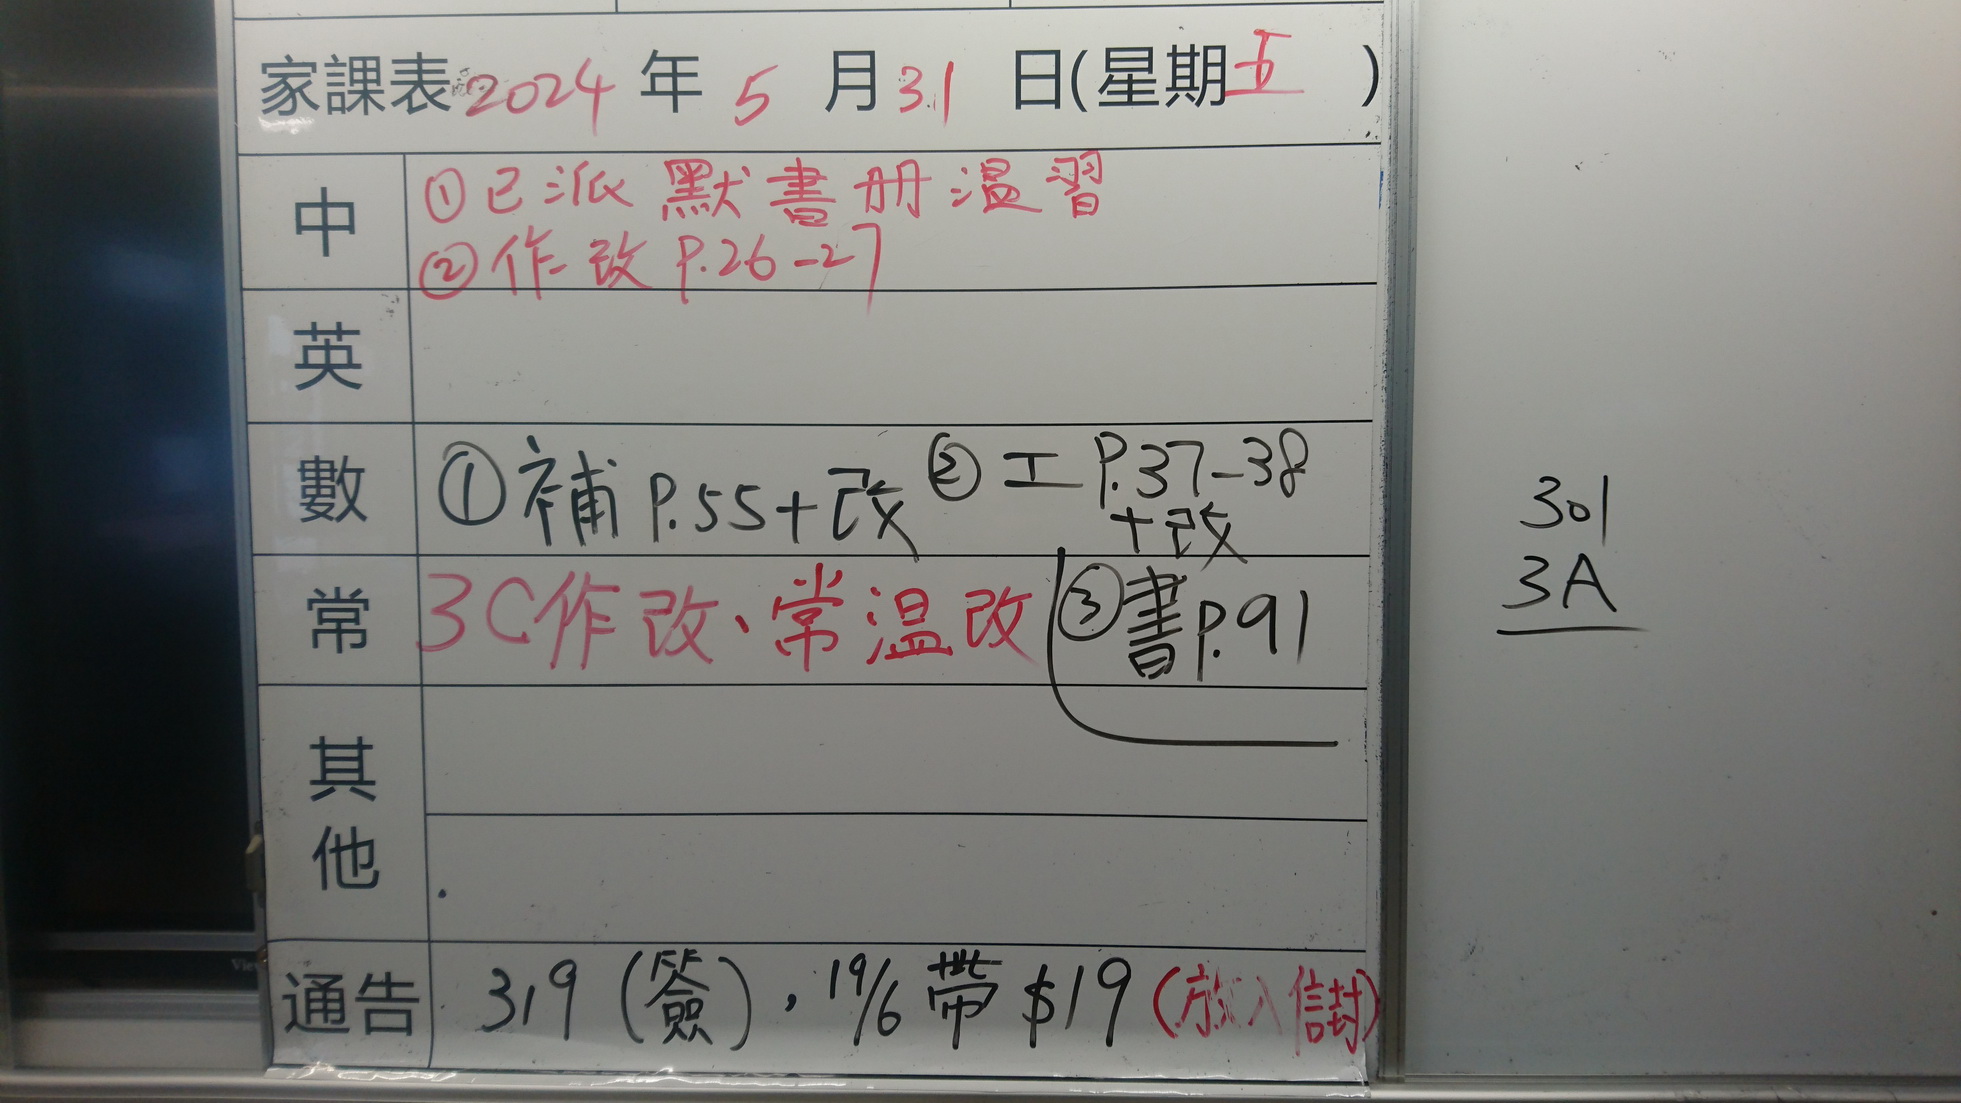 家課表 2024 年 5 月 31 日(星期五)
中 ①已派默書册温習
②作改 P.26-27
英
數 ①補 P.55+改 ②工 P.37-38
+改
常 3C作改、常温改 ③書P.91
其他
通告 319 (簽), 19/6 帶 $19 (放入信封)
301
3A